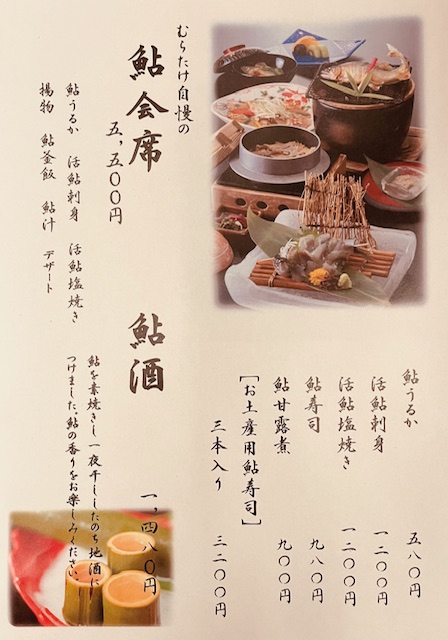 鮎うるか 五八〇円
活鮎刺身 一二〇〇円
活鮎塩焼き 一二〇〇円
鮎寿司 九八〇円
鮎甘露煮 九〇〇円
[お土産用鮎寿司]
三本入り 三二〇〇円
むらたけ自慢の
鮎会席
五,五〇〇円
鮎うるか 活鮎刺身 活鮎塩焼き
揚物 鮎釜飯 鮎汁 デザート
鮎酒 一,四八〇円
鮎を素焼きし一夜干ししたのち地酒に
つけました。鮎の香りをお楽しみください